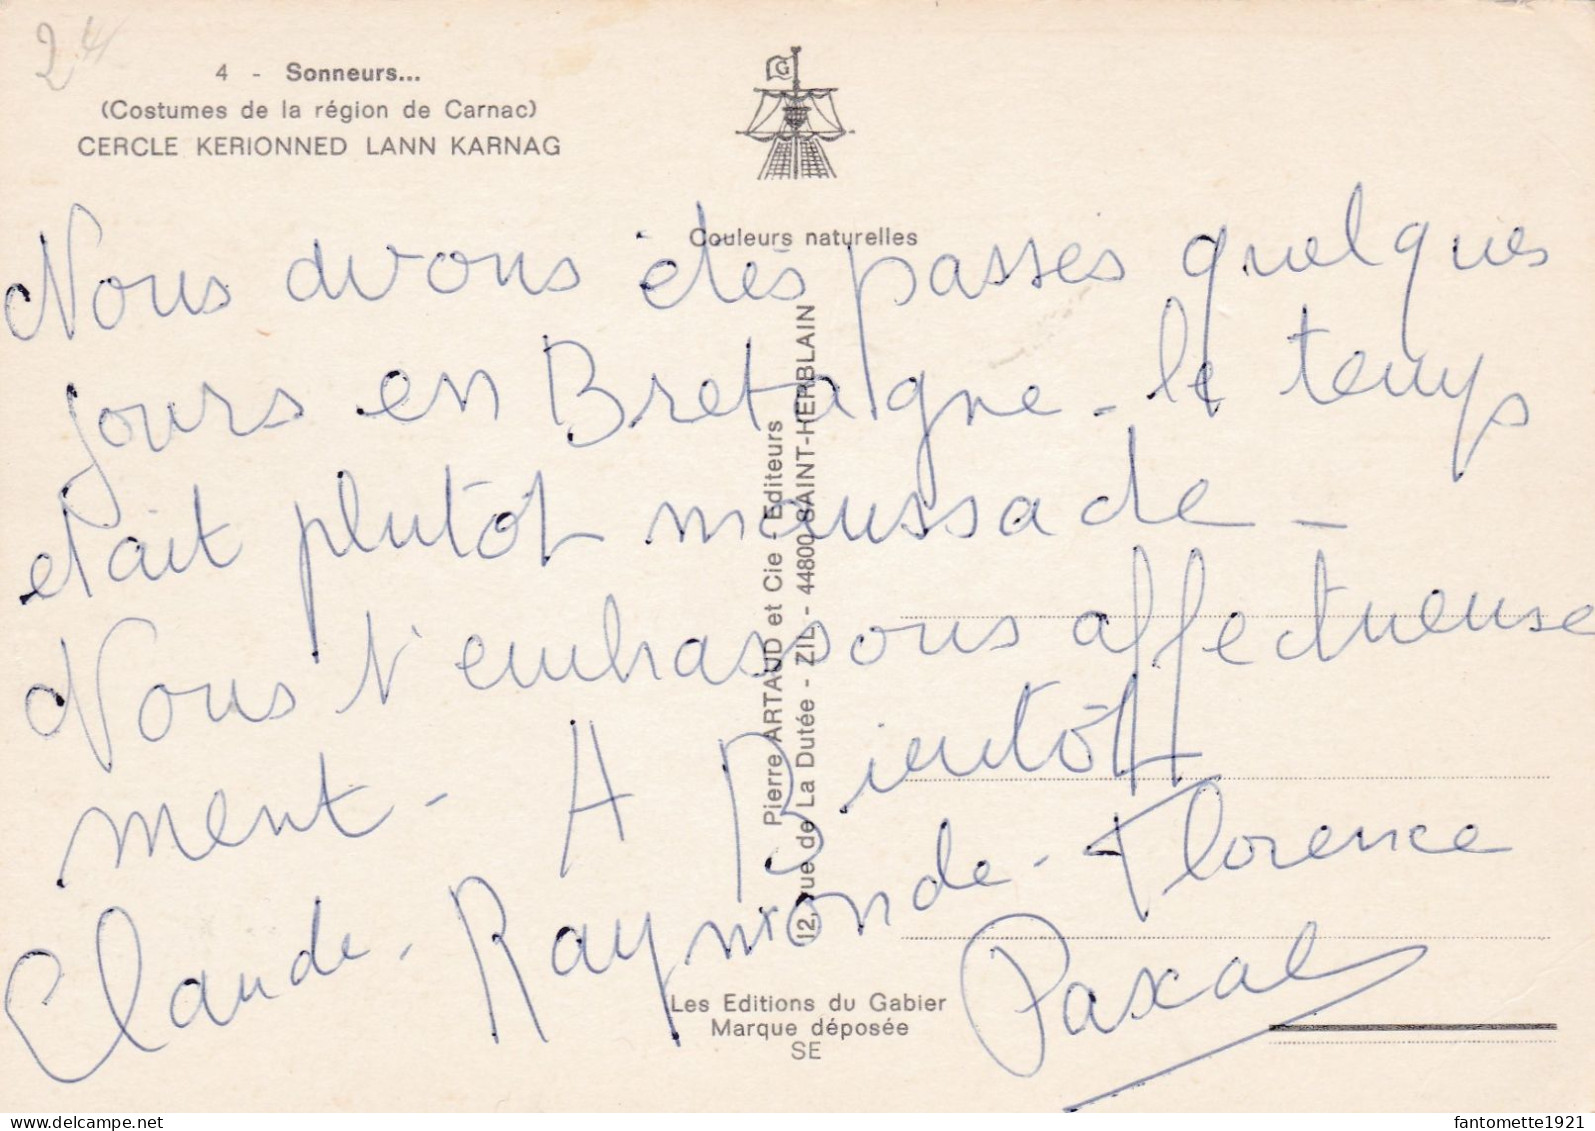 24
4 - Sonneurs...
(Costumes de la région de Carnac)
CERCLE KERIONNED LANN KARNAG
G
Couleurs naturelles
Nous avons étés passés quelques
jours en Bretagne - le temps
était plutôt maussade -
Nous t'embrassons affectueuse
ment - A Bientôt
Claude - Raymonde - Florence
Pascal
Pierre ARTAUD et Cie - Editeurs
12, rue de La Dutée - ZIL - 44800 SAINT-HERBLAIN
Les Editions du Gabier
Marque déposée
SE
fantomette1921